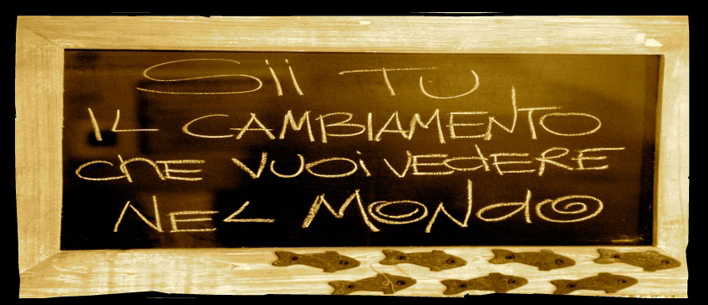 Sii TU
IL CAMBIAMENTO
chE VUOi VEdERE
NEL MONdO